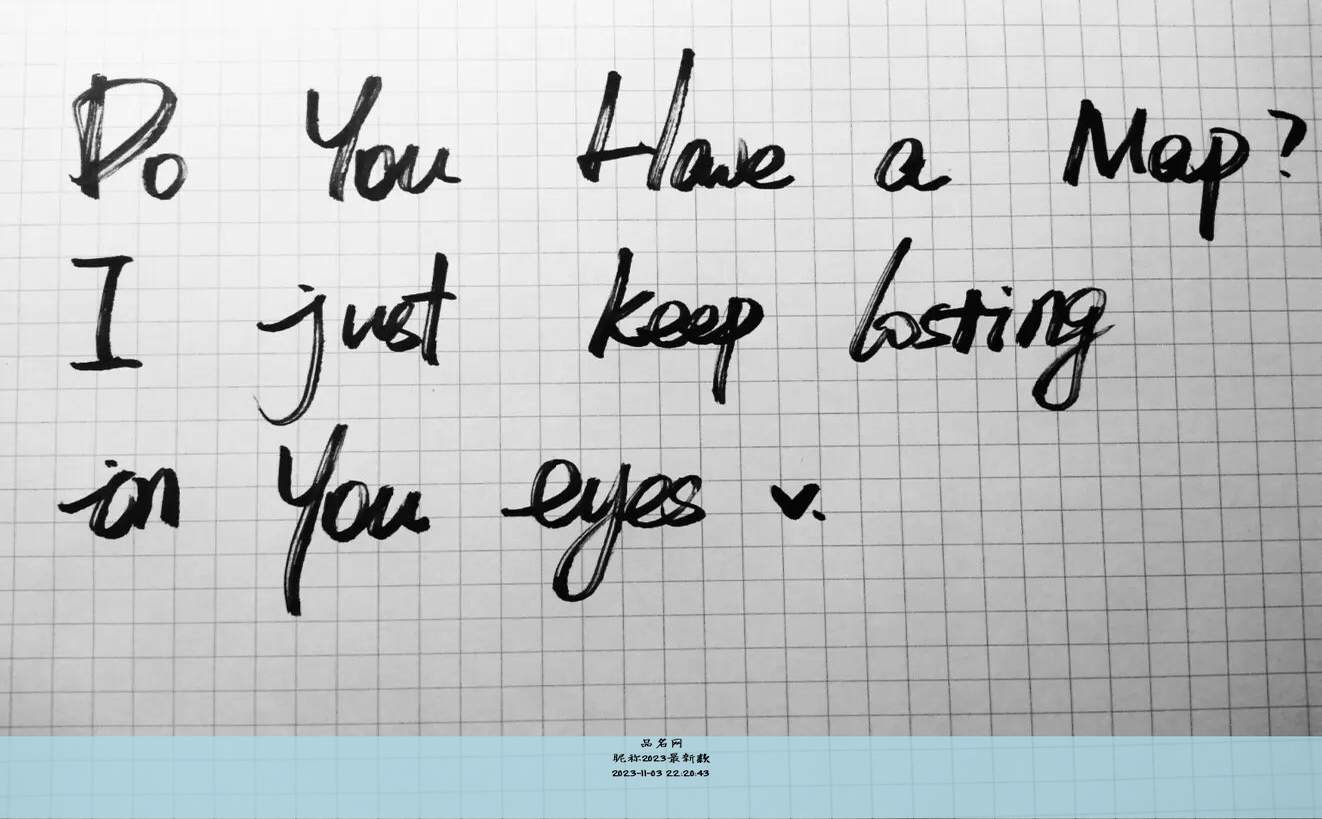 Do You Have a Map?
I just keep losting
in You eyes ♥.
品名网
昵称2023最新款
2023-11-03 22:20:43